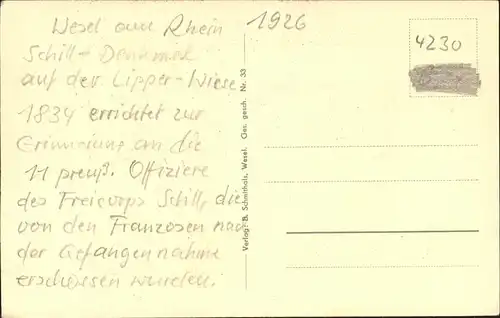 Wesel am Rhein
Schill-Denkmal
auf der Lipper-Wiese
1834 errichtet zur
Erinnerung an die
11 preuß. Offiziere
des Freicorps Schill, die
von den Franzosen nach
der Gefangennahme
erschossen wurden.
1926
4230
Verlag: B. Schmithals, Wesel. Ges. gesch. Nr. 33